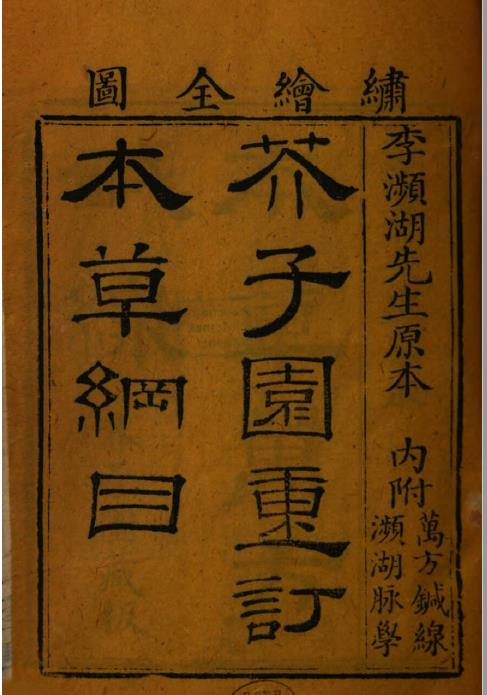 繡繪全圖
李瀕湖先生原本 內附
萬方鍼線
瀕湖脉學
芥子園重訂
本草綱目